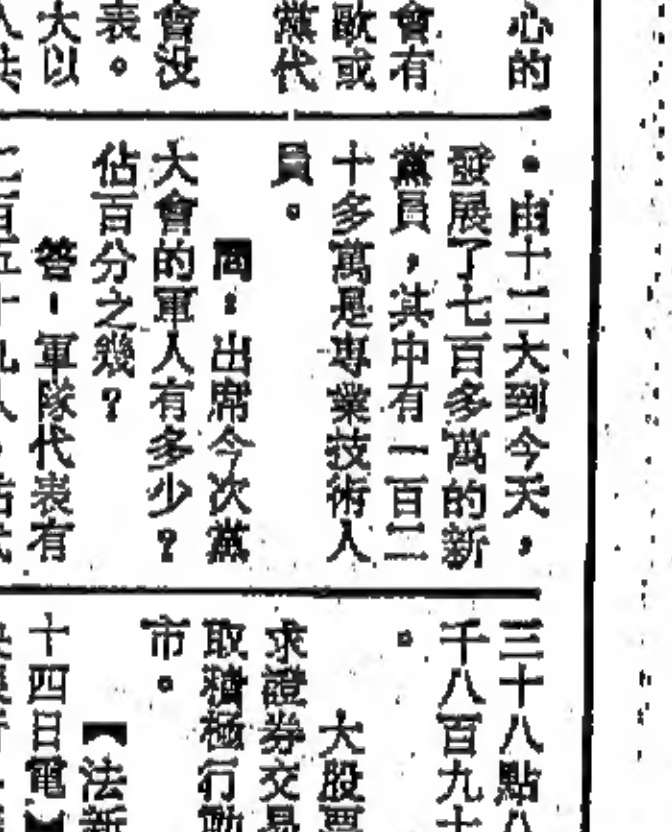 心的
會有
歐或
黨代
會沒
表。
大以
。由十二大到今天，
發展了七百多萬的新
黨員，其中有一百二
十多萬是專業技術人
員。
問：出席今次黨
大會的軍人有多少？
佔百分之幾？
答：軍隊代表有
二百五十九人，佔代
三十八點八
千八百九十
。
大股票
求證券交易
取積極行動
市。
【法新
十四日電】